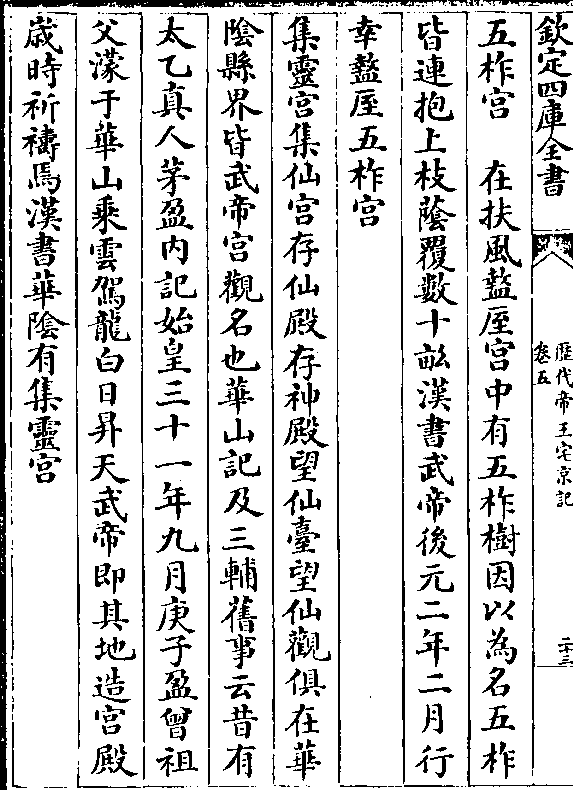 欽定四庫全書
歴代帝王宅京記
卷五
二十三
五柞宮　在扶風盩厔宮中有五柞樹因以為名五柞
皆連抱上枝蔭覆數十畝漢書武帝後元二年二月行
幸盩厔五柞宮
集靈宮集仙宮存仙殿存神殿望仙臺望仙觀俱在華
陰縣界皆武帝宮觀名也華山記及三輔舊事云昔有
太乙真人茅盈内記始皇三十一年九月庚子盈曾祖
父濛于華山乘雲駕龍白日昇天武帝即其地造宮殿
歲時祈禱焉漢書華陰有集靈宮